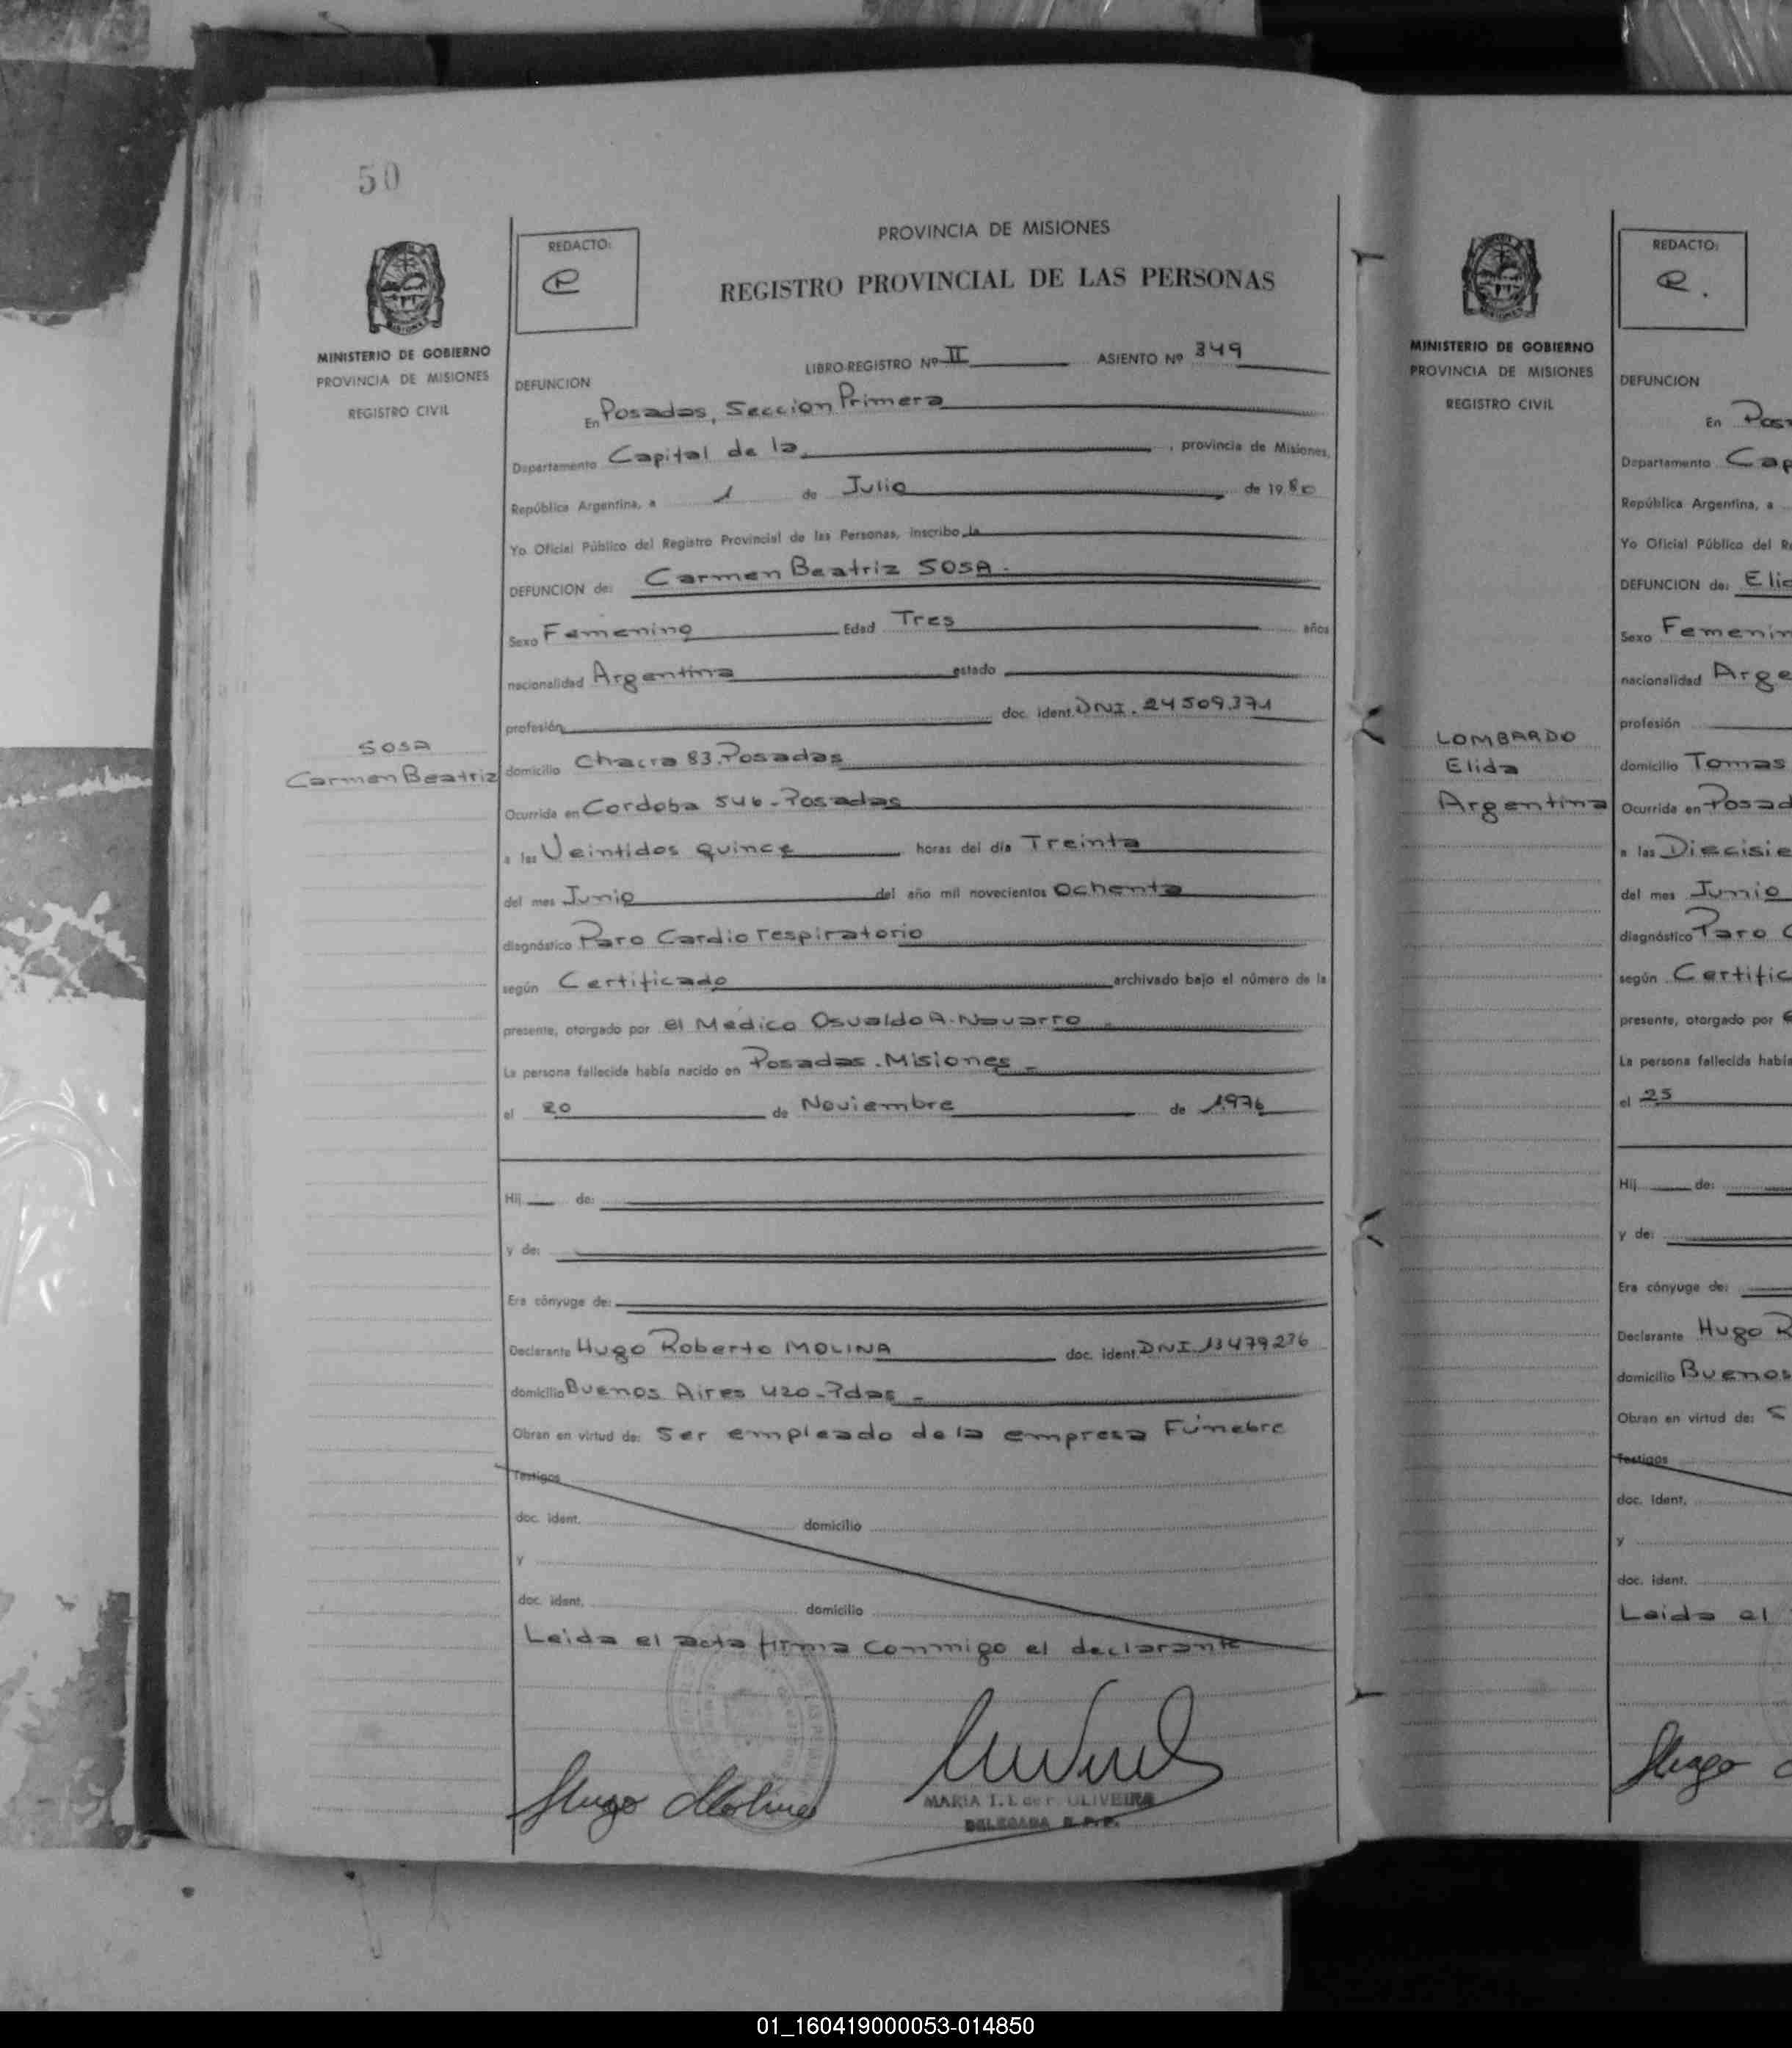 50
REDACTO:
PROVINCIA DE MISIONES
REGISTRO PROVINCIAL DE LAS PERSONAS
MINISTERIO DE GOBIERNO
PROVINCIA DE MISIONES
REGISTRO CIVIL
LIBRO-REGISTRO Nº II ASIENTO Nº 349
DEFUNCION
En Posadas, Seccion Primera
Departamento Capital de la, provincia de Misiones,
República Argentina, a 1 de Julio de 1980
Yo Oficial Público del Registro Provincial de las Personas, inscribo la
DEFUNCION de: Carmen Beatriz SOSA.
Sexo Femenino Edad Tres años
nacionalidad Argentina estado
profesión doc. ident. DNI. 24509.371
SOSA
Carmen Beatriz
domicilio Chacra 83.Posadas
Ocurrida en Cordoba 546-Posadas
a las Veintidos quince horas del día Treinta
del mes Junio del año mil novecientos Ochenta
diagnóstico Paro Cardio respiratorio
según Certificado archivado bajo el número de la
presente, otorgado por el Medico Osvaldo A. Navarro
La persona fallecida había nacido en Posadas.Misiones
el 20 de Noviembre de 1976
Hij de:
y de:
Era cónyuge de:
Declarante Hugo Roberto MOLINA doc. ident. DNI.13479236
domicilio Buenos Aires 420-Pdas
Obran en virtud de: Ser empleado de la empresa Fúnebre
Testigos
doc. ident. domicilio
y
doc. ident. domicilio
Leida el acta firma conmigo el declarante
Hugo Molina
MARIA OLIVEIRA
DELEGADA R.P.P.
REDACTO:
MINISTERIO DE GOBIERNO
PROVINCIA DE MISIONES
REGISTRO CIVIL
DEFUNCION
En Pos
Departamento Cap
República Argentina, a
Yo Oficial Público del R
DEFUNCION de: Eli
Sexo Femenin
nacionalidad Arge
profesión
LOMBARDO
Elida
Argentina
domicilio Tomas
Ocurrida en Posad
a las Diecisie
del mes Junio
diagnóstico Paro C
según Certific
presente, otorgado por e
La persona fallecida había
el 25
Hij de:
y de:
Era cónyuge de:
Declarante Hugo R
domicilio Buenos
Obran en virtud de: S
Testigos
doc. ident.
y
doc. ident.
Leida el
Hugo
01_160419000053-014850